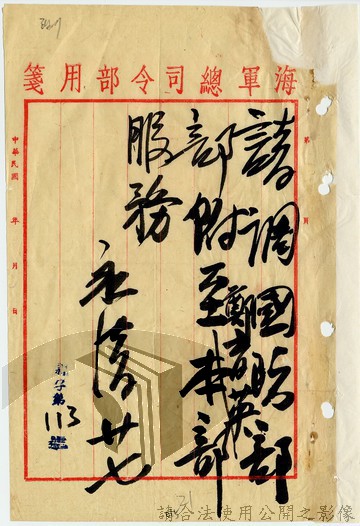 海軍總司令部用箋
請調國防部
部附鄭音英
至本部
服務
永清 廿七
中華民國 年 月 日
字第113號
請合法使用公開之影像